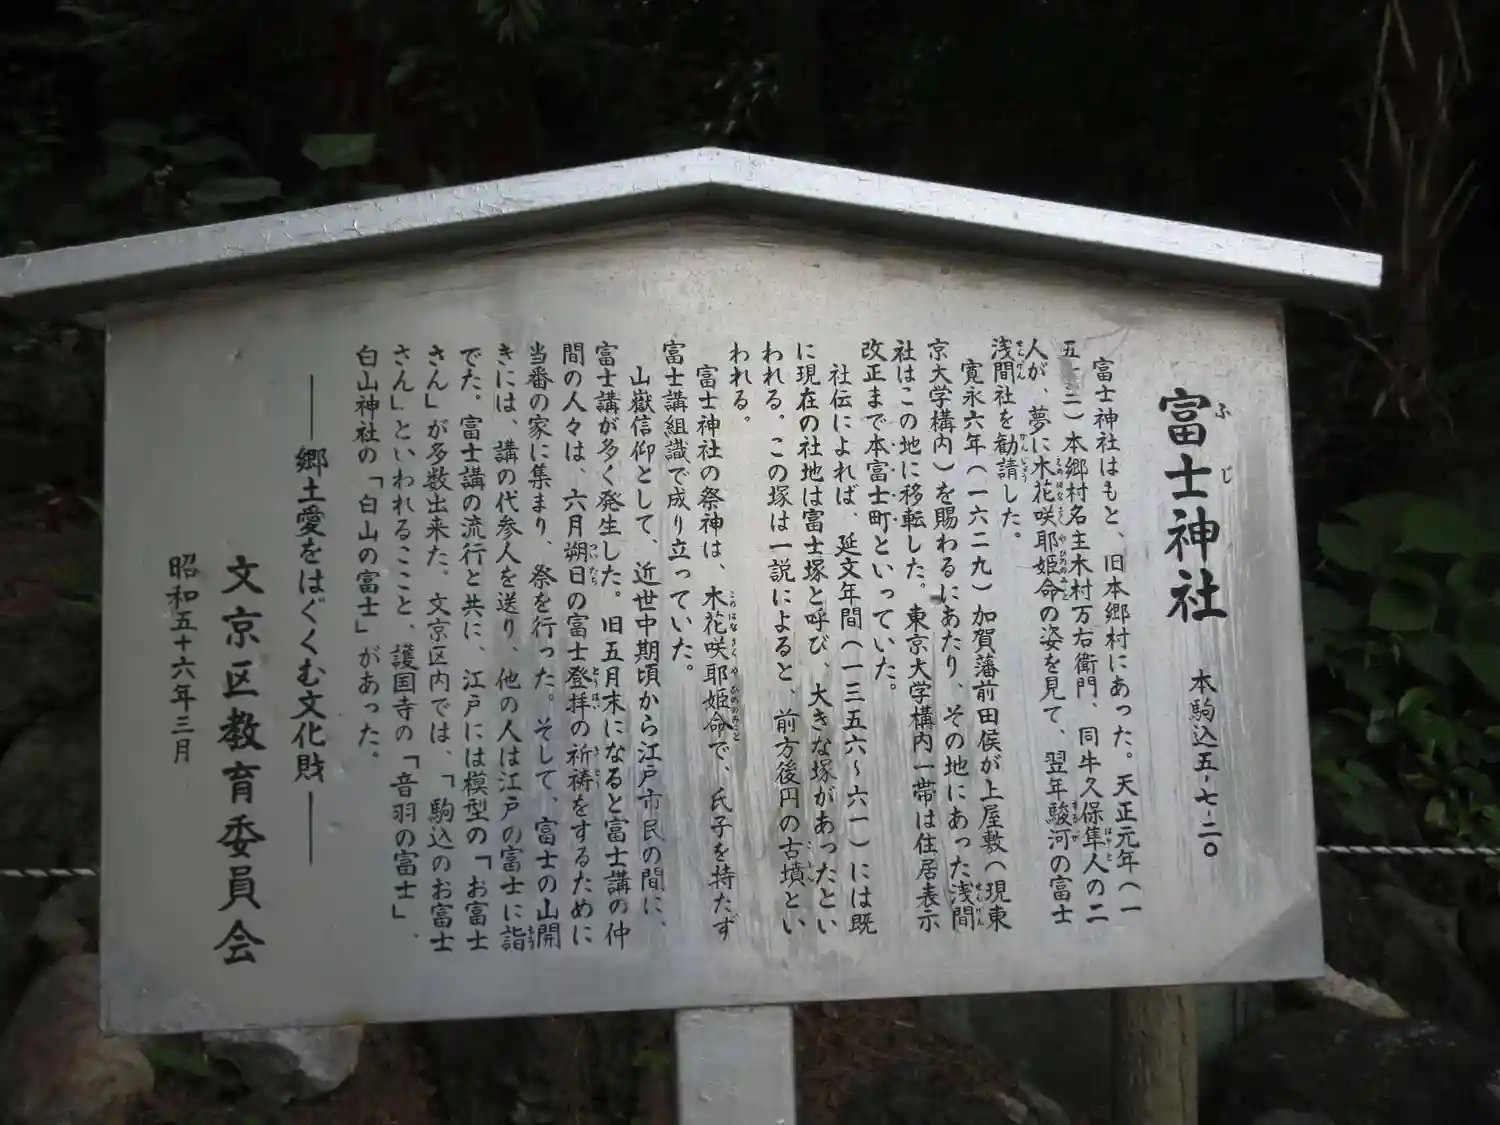 富士神社 本駒込五-七-二〇
ふじ
富士神社はもと、旧本郷村にあった。天正元年(一
五 三)本郷村名主木村万右衛門、同牛久保隼人の二
人が、夢に木花咲耶姫命の姿を見て、翌年駿河の富士
浅間社を勧請した。
寛永六年(一六二九)加賀藩前田侯が上屋敷(現東
京大学構内)を賜わるにあたり、その地にあった浅間
社はこの地に移転した。東京大学構内一帯は住居表示
改正まで本富士町といっていた。
社伝によれば、延文年間(一三五六〜六一)には既
に現在の社地は富士塚と呼び、大きな塚があったとい
われる。この塚は一説によると、前方後円の古墳とい
われる。
富士神社の祭神は、木花咲耶姫命で、氏子を持たず
富士講組織で成り立っていた。
山嶽信仰として、近世中期頃から江戸市民の間に、
富士講が多く発生した。旧五月末になると富士講の仲
間の人々は、六月朔日の富士登拝の祈祷をするために
当番の家に集まり、祭を行った。そして、富士の山開
きには、講の代参人を送り、他の人は江戸の富士に詣
でた。富士講の流行と共に、江戸には模型の「お富士
さん」が多数出来た。文京区内では、「駒込のお富士
さん」といわれるここと、護国寺の「音羽の富士」、
白山神社の「白山の富士」があった。
――郷土愛をはぐくむ文化財――
文京区教育委員会
昭和五十六年三月